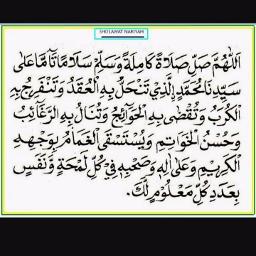 SHOLAWAT NARIYAH
اَللّٰهُمَّ صَلِّ صَلَاةً كَامِلَةً وَسَلِّمْ سَلَامًا تَآمًّا عَلَى
سَيِّدِنَا مُحَمَّدٍ الَّذِيْ تَنْحَلُّ بِهِ الْعُقَدُ وَتَنْفَرِجُ بِهِ
الْكُرَبُ وَتُقْضٰى بِهِ الْحَوَآئِجُ وَتُنَالُ بِهِ الرَّغَآئِبُ
وَحُسْنُ الْخَوَاتِمِ وَيُسْتَسْقَى الْغَمَامُ بِوَجْهِهِ
الْكَرِيْمِ وَعَلٰى اٰلِهٖ وَصَحْبِهِ فِيْ كُلِّ لَمْحَةٍ وَنَفَسٍ
بِعَدَدِ كُلِّ مَعْلُوْمٍ لَكَ.